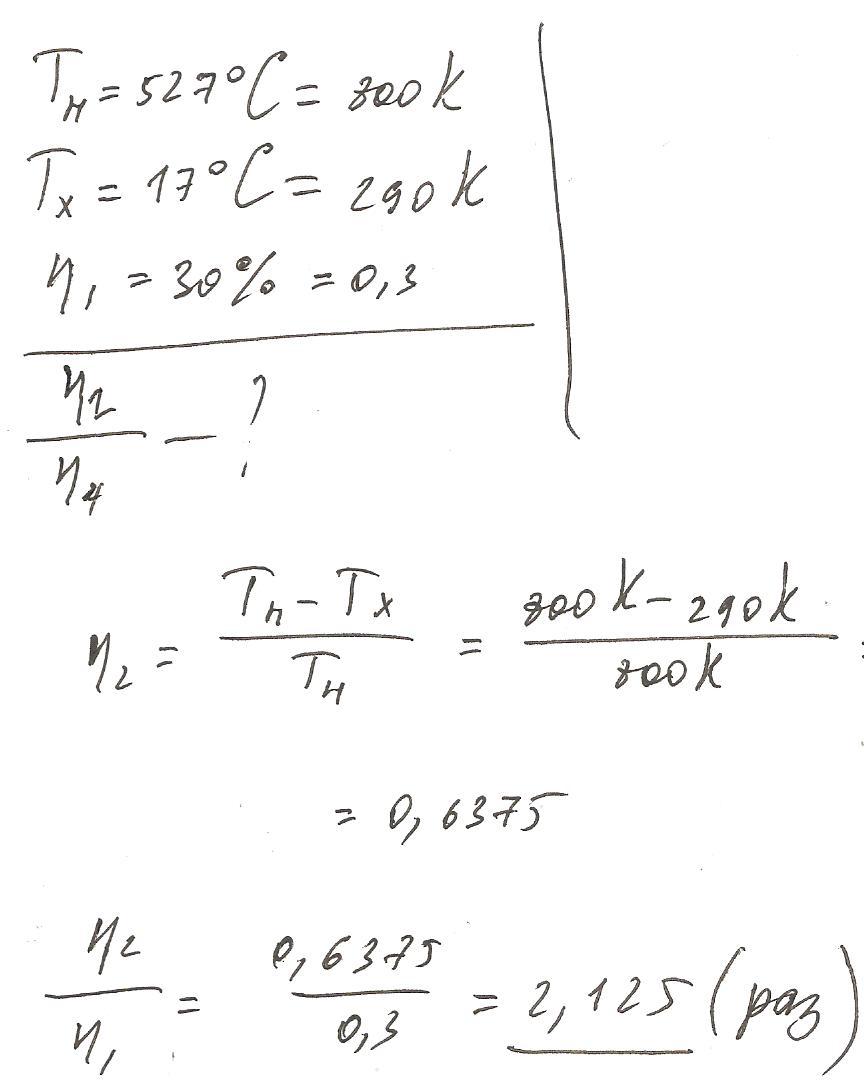 Tн = 527°C = 800K
Tх = 17°C = 290K
η₁ = 30% = 0,3
η₂/η₁ - ?
η₂ = (Tн - Tх)/Tн = (800K - 290K)/800K =
= 0,6375
η₂/η₁ = 0,6375/0,3 = 2,125 (раз)